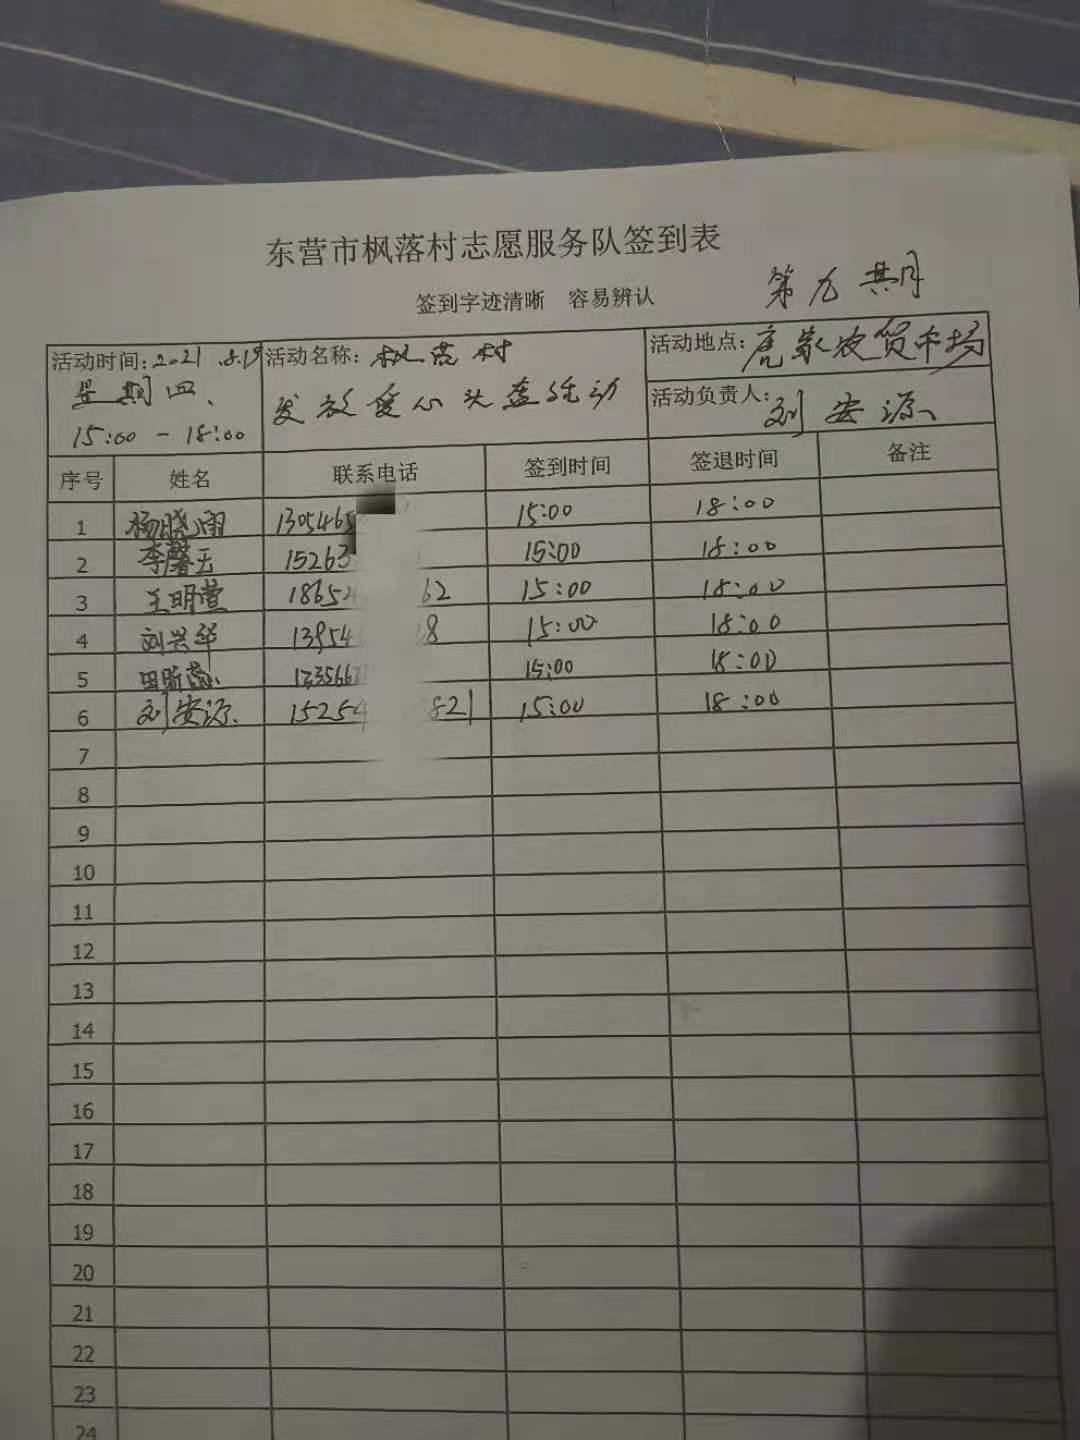 东营市枫落村志愿服务队签到表
签到字迹清晰 容易辨认
第九期
活动时间:2021.8.19
星期四、
15:00-18:00
活动名称:枫落村
发放爱心头盔活动
活动地点:唐家农贸市场
活动负责人:刘安源
序号 姓名 联系电话 签到时间 签退时间 备注
1 杨晓雨 1305465 15:00 18:00
2 李馨玉 15263 15:00 18:00
3 王明萱 18654 62 15:00 18:00
4 刘兴华 13954 8 15:00 18:00
5 田昕蕊 1335667 15:00 18:00
6 刘安源 15254 821 15:00 18:00
7
8
9
10
11
12
13
14
15
16
17
18
19
20
21
22
23
24